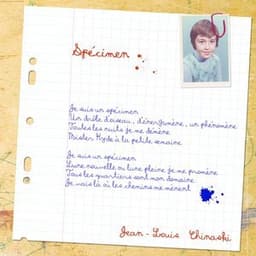 Spécimen
Je suis un spécimen
Un drôle d'oiseau, d'énergumène, un phénomène
Toutes les nuits je me démène
Mister Hyde à la petite semaine
Je suis un spécimen
Lune nouvelle ou lune pleine je me promène
Tous les quartiers sont mon domaine
Je vais là où les chemins me mènent
Jean-Louis Chinaski